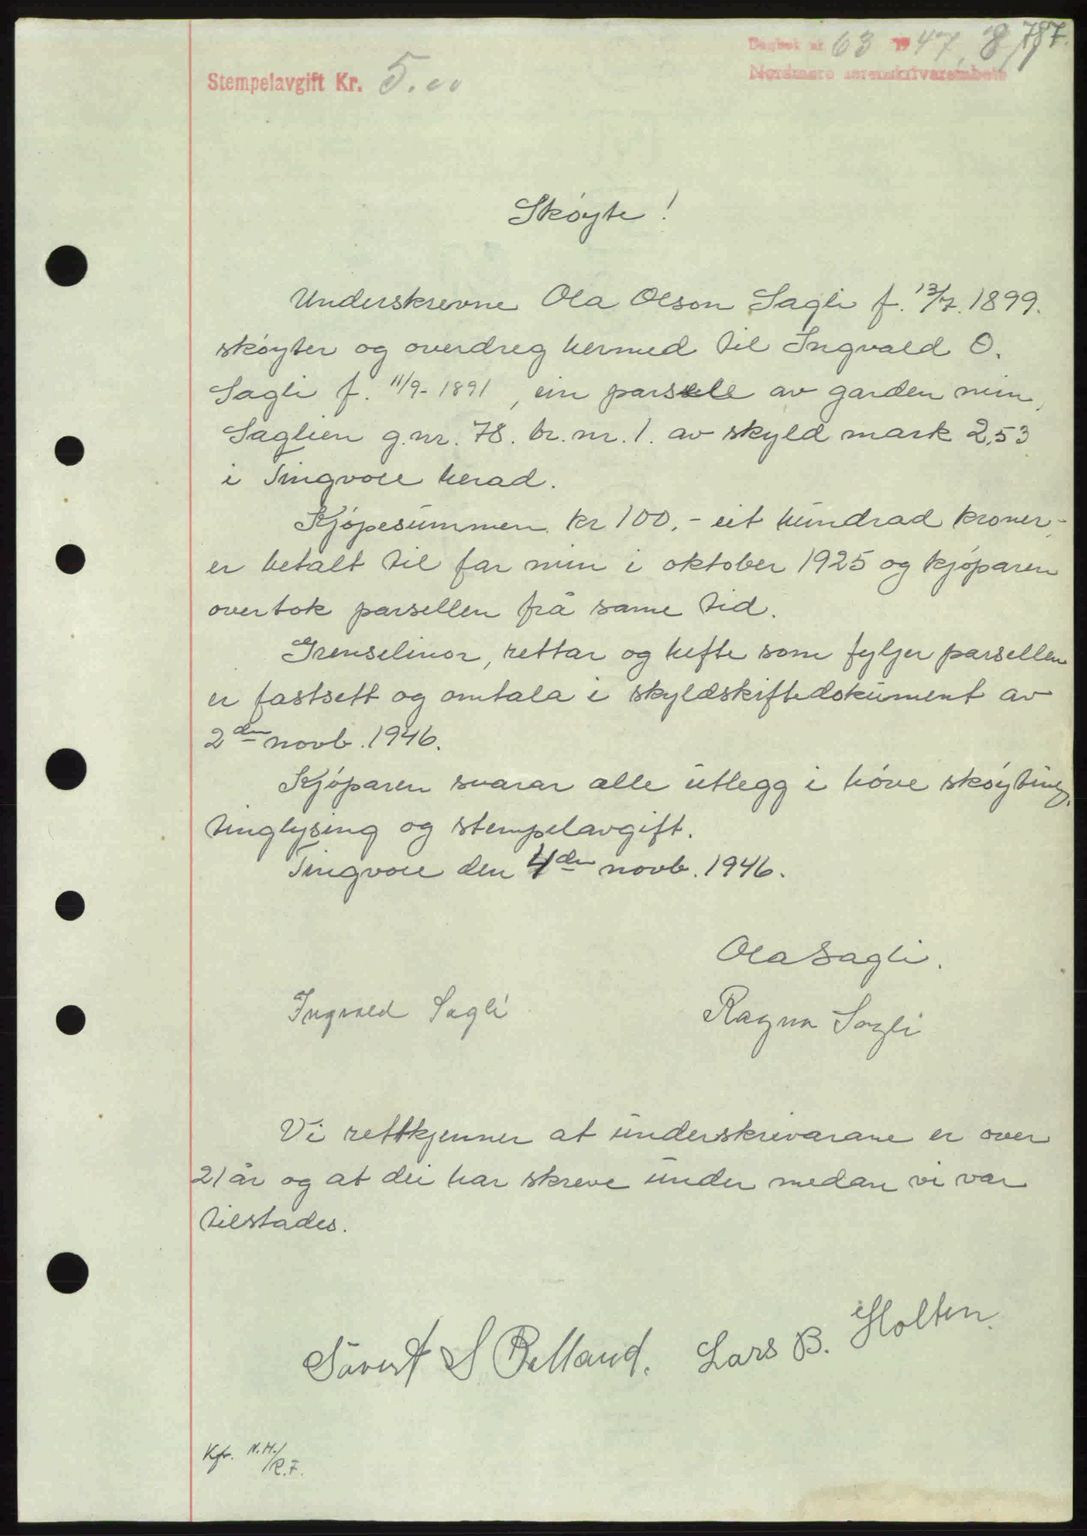 787.
Dagbok nr 63 1947, 8/1
Nordmøre sorenskriverembete
Stempelavgift Kr. 5.00
Skøyte!
Underskrevne Ola Olson Sagli f. 13/7. 1899.
skøyter og overdreg hermed til Ingvald O.
Sagli f. 11/9-1891, ein parsell av garden min,
Saglien g.nr. 78. br.nr. 1. av skyld mark 2,53
i Tingvoll herad.
Kjøpesummen kr 100.- eit hundrad kroner,-
er betalt til far min i oktober 1925 og kjøparen
overtok parsellen frå same tid.
Grenselinor, rettar og hefte som fylgjer parsellen
er fastsett og omtala i skyldskiftedokument av
2den novb. 1946.
Kjøparen svarar alle utlegg i høve skøyting,
tinglysing og stempelavgift.
Tingvoll den 4den novb. 1946.
Ola Sagli.
Ingvald Sagli
Ragna Sagli
Vi rettkjenner at underskrivarane er over
21 år og at dei har skreve under medan vi var
tilstades.
Sivert S Belland. Lars B. Holten.
Kfr. N.H./R.F.